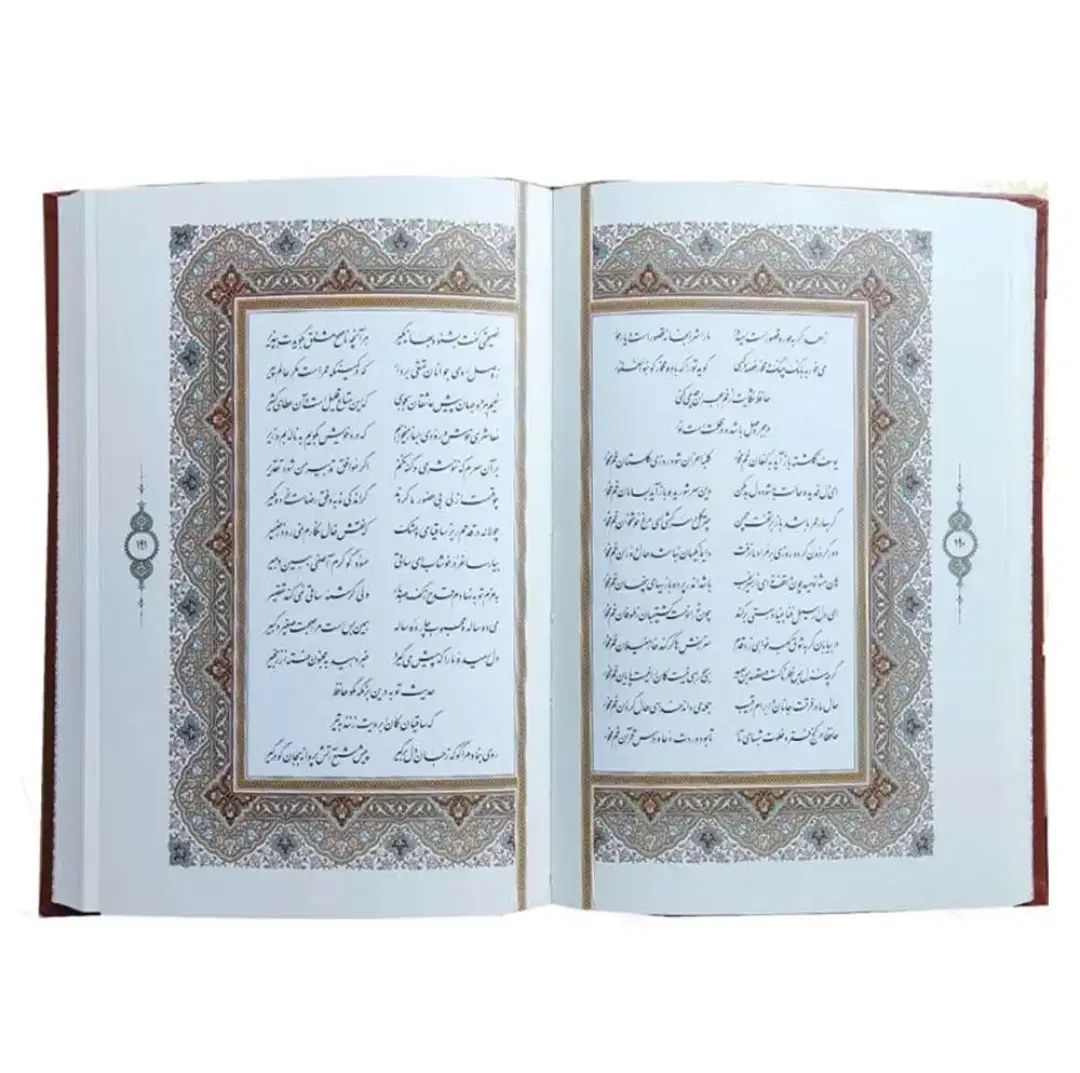 زاهد اگر به حور و قصور است امیدوار ما را شرابخانه قصور است و یار حور
می خور به بانگ چنگ و مخور غصه ور کسی گوید تو را که باده مخور گو هوالغفور
حافظ شکایت از غم هجران چه می کنی
در هجر وصل باشد و در ظلمت است نور
یوسف گمگشته باز آید به کنعان غم مخور کلبه احزان شود روزی گلستان غم مخور
ای دل غمدیده حالت به شود دل بد مکن وین سر شوریده باز آید به سامان غم مخور
گر بهار عمر باشد باز بر تخت چمن چتر گل در سر کشی ای مرغ خوشخوان غم مخور
دور گردون گر دو روزی بر مراد ما نرفت دایما یکسان نباشد حال دوران غم مخور
هان مشو نومید چون واقف نه ای از سر غیب باشد اندر پرده بازیهای پنهان غم مخور
ای دل ار سیل فنا بنیاد هستی بر کند چون تو را نوح است کشتیبان ز طوفان غم مخور
در بیابان گر به شوق کعبه خواهی زد قدم سرزنش ها گر کند خار مغیلان غم مخور
گر چه منزل بس خطرناک است و مقصد بس بعید هیچ راهی نیست کان را نیست پایان غم مخور
حال ما در فرقت جانان و ابرام رقیب جمله می داند خدای حال گردان غم مخور
حافظا در کنج فقر و خلوت شبهای تار تا بود وردت دعا و درس قرآن غم مخور
۱۹۰
نصیحتی کنمت بشنو و بهانه مگیر هر آنچه ناصح مشفق بگویدت بپذیر
ز وصل روی جوانان تمتعی بردار که در کمینگه عمر است مکر عالم پیر
نعیم هر دو جهان پیش عاشقان بجوی که این متاع قلیل است و آن عطای کثیر
معاشری خوش و رودی بساز می خواهم که درد خویش بگویم به ناله بم و زیر
بر آن سرم که ننوشم می و گنه نکنم اگر موافق تدبیر من شود تقدیر
چو قسمت ازلی بی حضور ما کردند گر اندکی نه به وفق رضاست خرده مگیر
چو لاله در قدحم ریز ساقیا می و مشک که نقش خال نگارم نمی رود ز ضمیر
بیار ساغر در خوشاب ای ساقی حسود گو کرم آصفی ببین و بمیر
به عزم توبه نهادم قدح ز کف صد بار ولی کرشمه ساقی نمی کند تقصیر
می دو ساله و محبوب چارده ساله همین بس است مرا صحبت صغیر و کبیر
دل رمیده ما را که پیش می گیرد خبر دهید به مجنون خسته از زنجیر
حدیث توبه در این بزمگه مگو حافظ
که ساقیان کمان ابرویت زنند به تیر
روی بنما و مرا گو که ز جان دل برگیر پیش شمع آتش پروانه به جان گو درگیر
۱۹۱